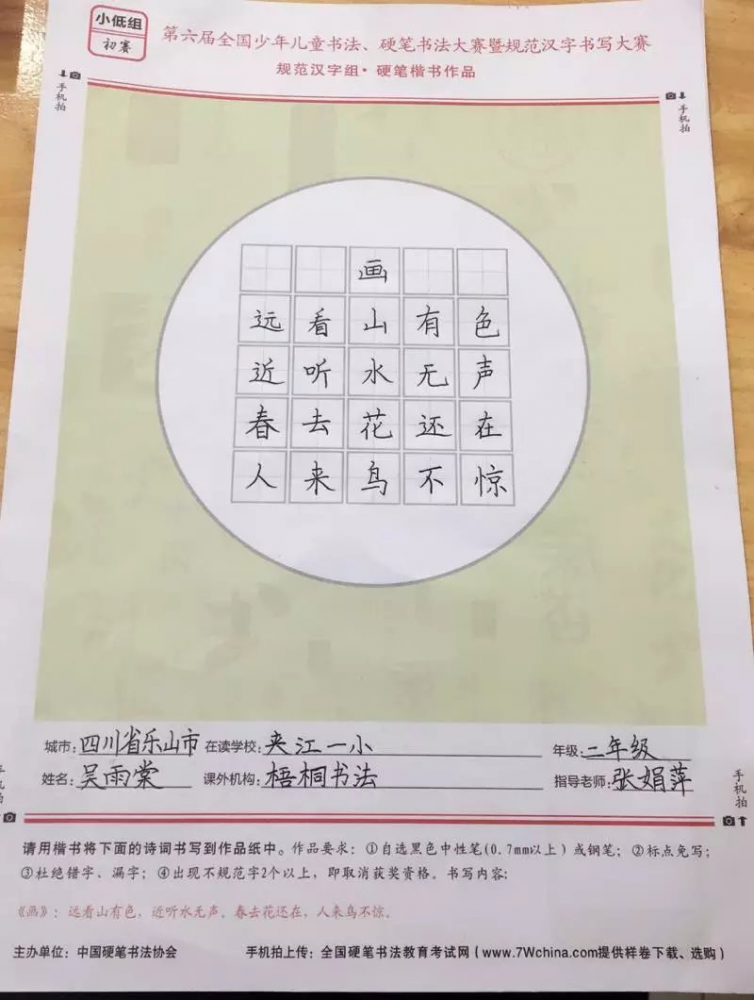 小低组
初赛
第六届全国少年儿童书法、硬笔书法大赛暨规范汉字书写大赛
规范汉字组·硬笔楷书作品
手机拍
手机拍
画
远看山有色
近听水无声
春去花还在
人来鸟不惊
城市:四川省乐山市 在读学校:夹江一小 年级:二年级
姓名:吴雨棠 课外机构:梧桐书法 指导老师:张娟萍
手机拍
手机拍
请用楷书将下面的诗词书写到作品纸中。作品要求:①自选黑色中性笔(0.7mm以上)或钢笔;②标点免写;
③杜绝错字、漏字;④出现不规范字2个以上,即取消获奖资格。书写内容:
《画》:远看山有色,近听水无声。春去花还在,人来鸟不惊。
主办单位:中国硬笔书法协会 手机拍上传:全国硬笔书法教育考试网(www.7Wchina.com提供样卷下载、选购)